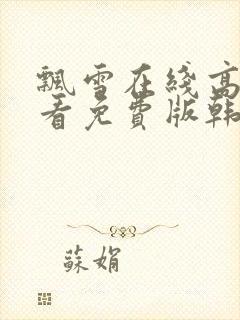 飄雪在綫高
看免費版韩
蘇娟